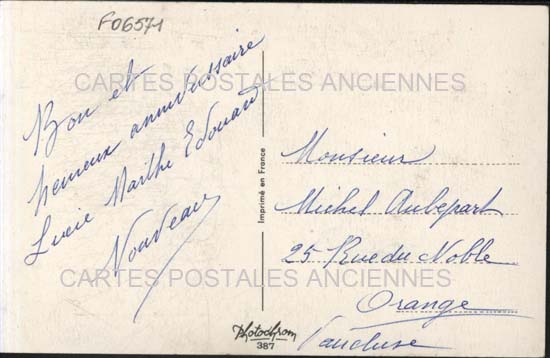 F06571
CARTES POSTALES ANCIENNES
Bon et
heureux anniversaire
Lucie Marthe Edouard
Nouveau
Imprimé en France
Monsieur
Michel Aubepart
25 Rue du Noble
Orange
Vaucluse
CARTES POSTALES ANCIENNES
Photochrom
387